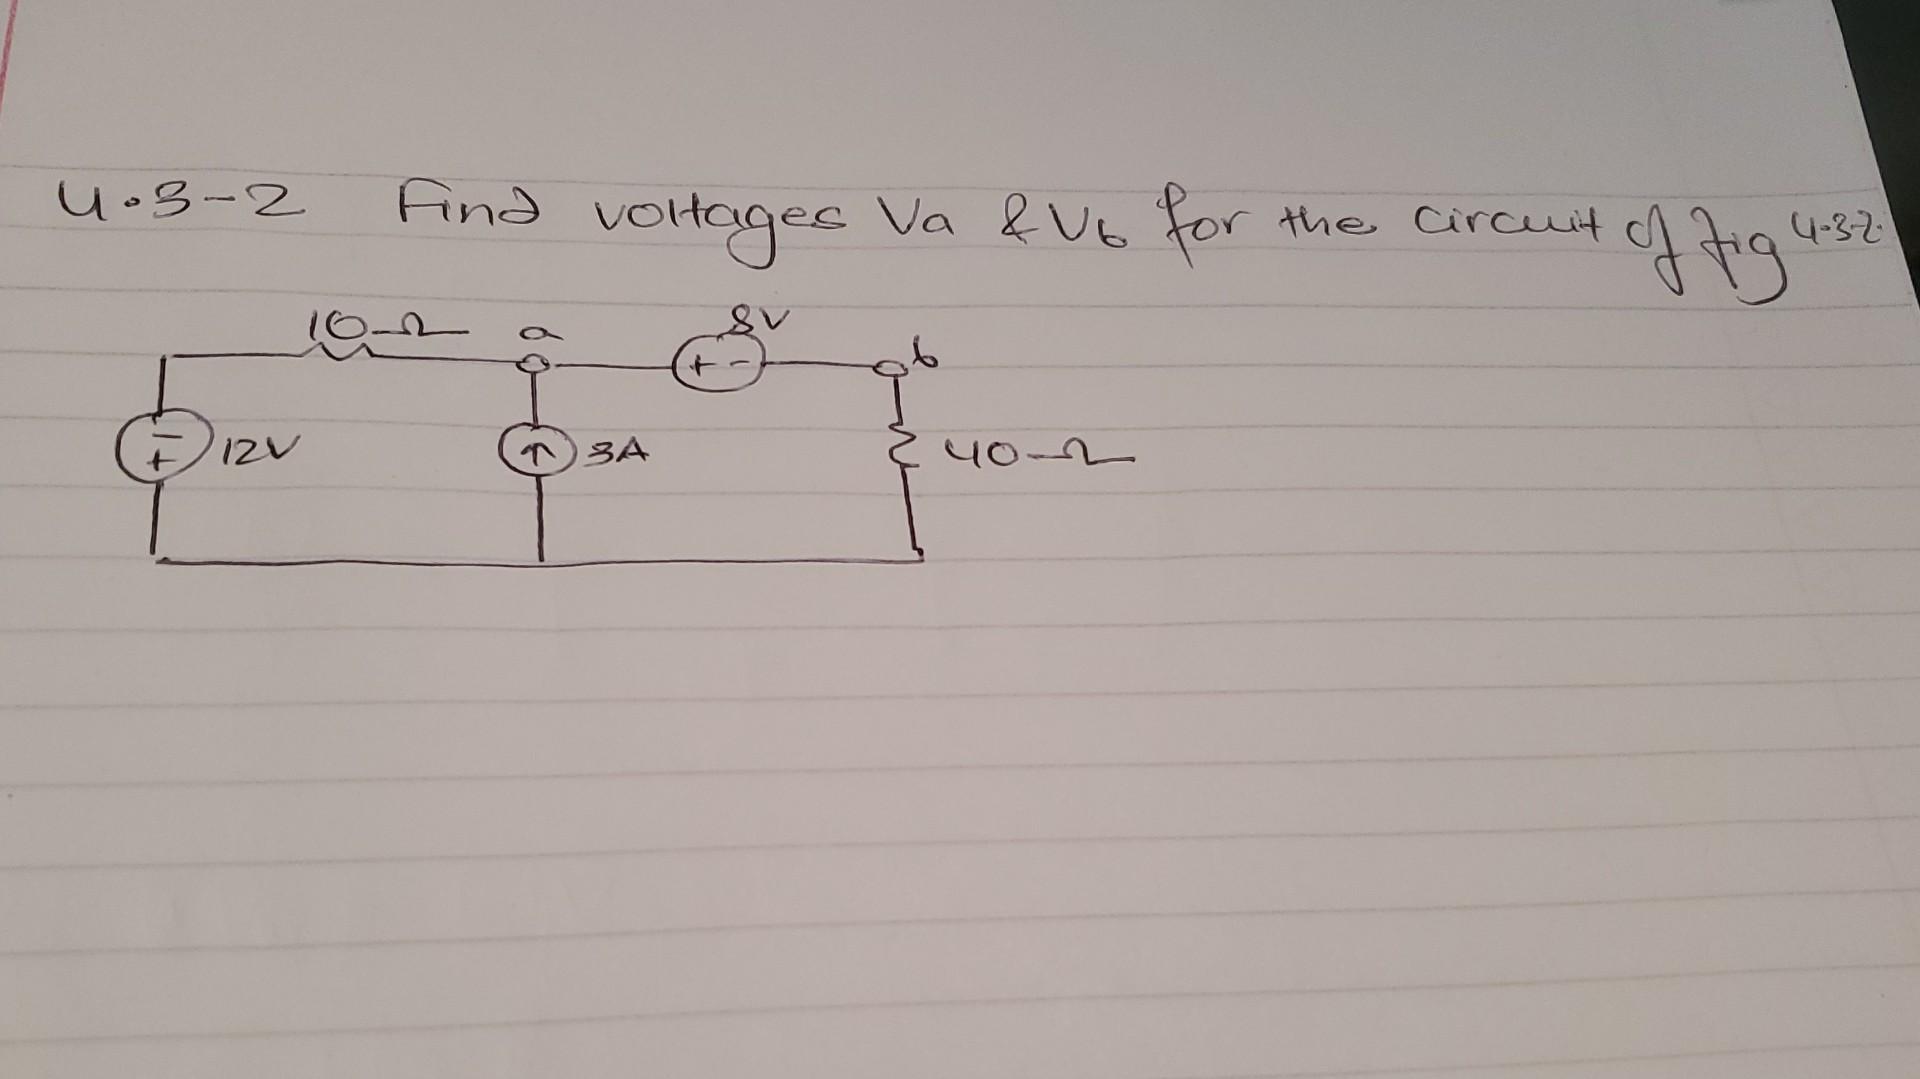 4.3-2 Find voltages Va & Vb for the circuit of fig 4.3-2.
10Ω a 8V b
+ -
- + 12V ↑ 3A 40Ω